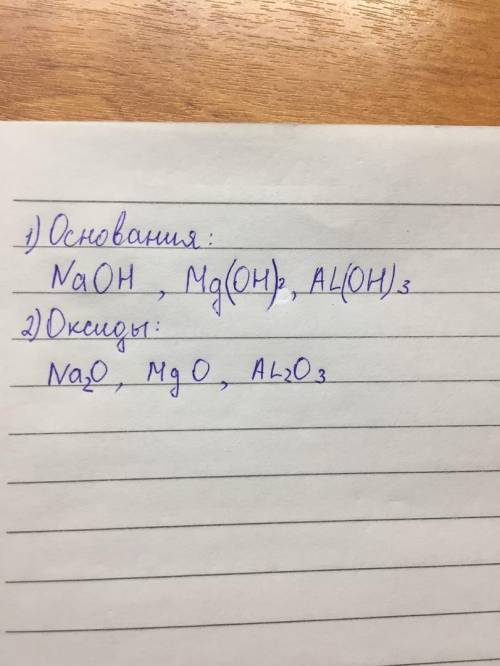 1) Основания:
NaOH, Mg(OH)₂, AL(OH)₃
2) Оксиды:
Na₂O, MgO, AL₂O₃